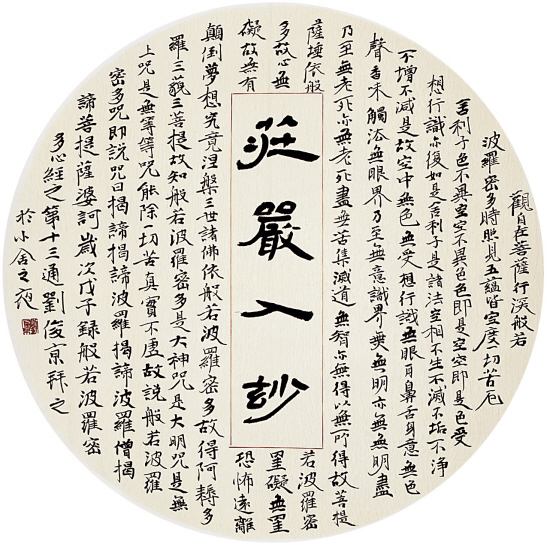 觀自在菩薩行深般若
波羅密多時照見五蘊皆空度一切苦厄
舍利子色不異空空不異色色即是空空即是色受
想行識亦復如是舍利子是諸法空相不生不滅不垢不淨
不增不減是故空中無色無受想行識無眼耳鼻舌身意無色
聲香味觸法無眼界乃至無意識界無無明亦無無明盡
乃至無老死亦無老死盡無苦集滅道無智亦無得以無所得故菩提
薩埵依般若波羅密
多故心無罣礙無罣
礙故無有恐怖遠離
莊嚴入玅
顛倒夢想究竟涅槃三世諸佛依般若波羅密多故得阿耨多
羅三藐三菩提故知般若波羅密多是大神咒是大明咒是無
上咒是無等等咒能除一切苦真實不虛故說般若波羅
密多咒即說咒曰揭諦揭諦波羅揭諦波羅僧揭
諦菩提薩婆訶歲次戊子錄般若波羅密
多心經之第十三通劉俊京拜之
於小舍之夜